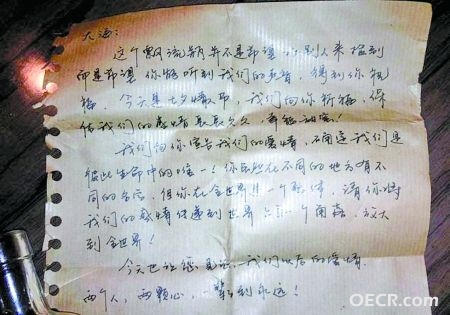 大海：
这个漂流瓶并不是希望 别人来捡到
而是希望 你能听到我们的声音，得到你祝
福，今天是七夕情人节，我们向你祈福，保
佑我们的爱情长长久久，幸福甜蜜！
我们向你宣告我们的爱情，确定这我们是
彼此生命中的唯一！你虽然在不同的地方有不
同的名字，但你在全世界 一个整体，请你将
我们的感情传递到世界 一个角落，放大
到全世界！
今天也让您见证，我们以后的爱情
两个人，两颗心，一辈 到永远！
OECR.com